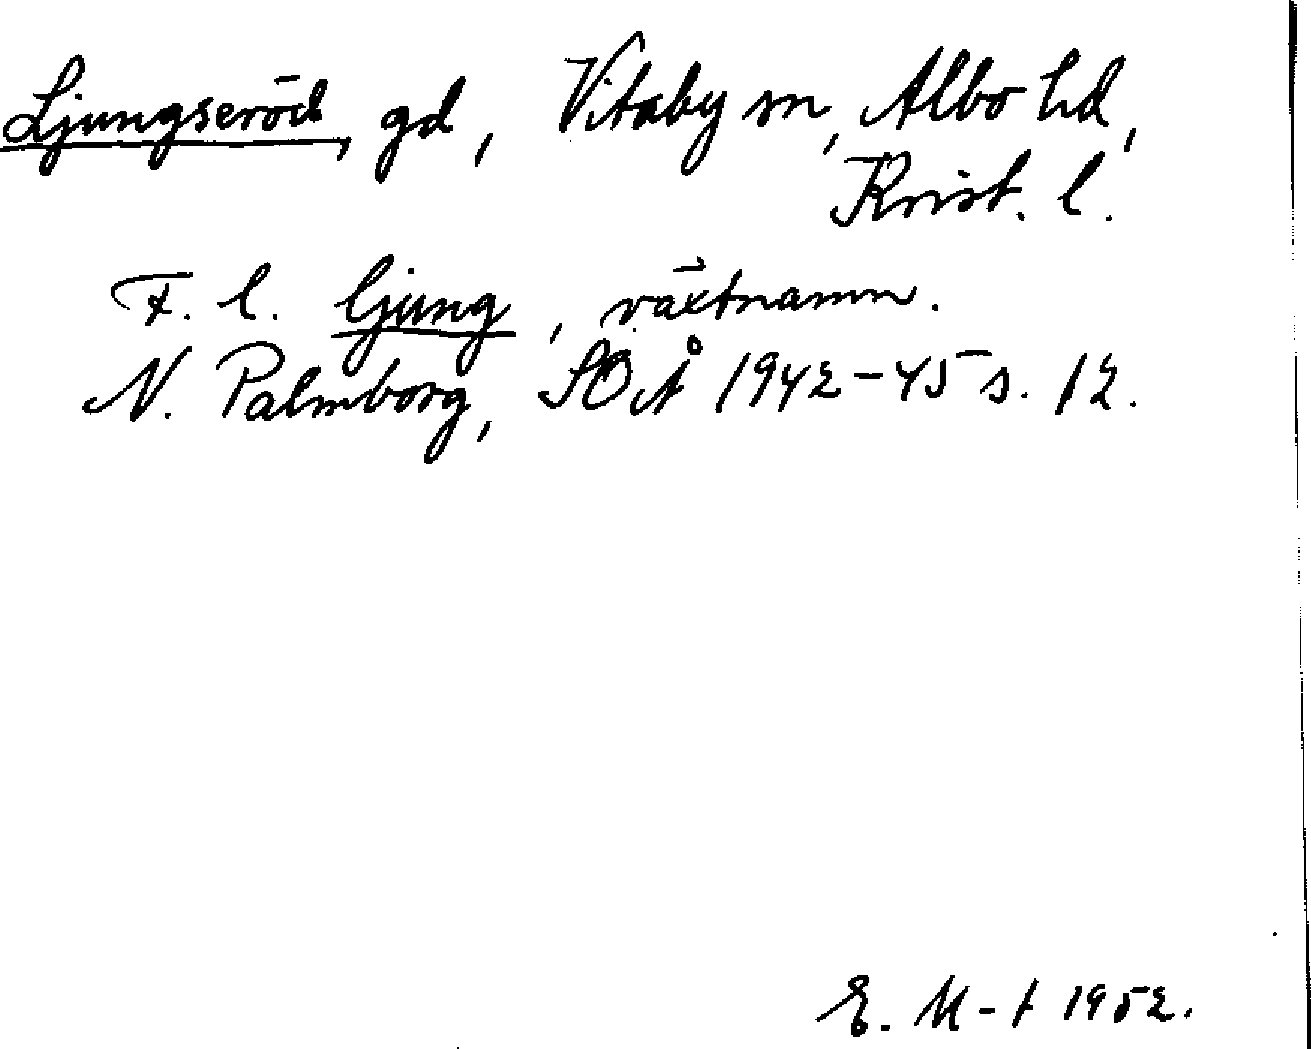 Ljungseröd, gd, Vitaby sn, Albo hd,
Krist. l.
F. l. ljung, växtnamn.
N. Palmborg, SOÅ 1942-45 s. 12.
E. M-t 1952.